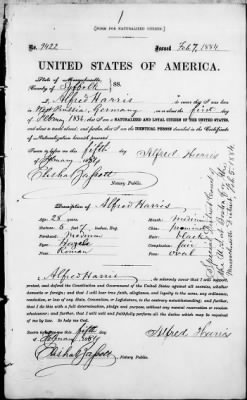 1
[FORM FOR NATURALIZED CITIZEN.]
No. 9422 Issued Feb 7, 1884
UNITED STATES OF AMERICA.
State of Massachusetts
County of Suffolk } ss.
I, Alfred Harris, do swear that I was born
in West Prussia, Germany on or about the first day of
February 1856; that I am a NATURALIZED AND LOYAL CITIZEN OF THE UNITED STATES,
and about to travel abroad; and further, that I am the IDENTICAL PERSON described in the Certificate
of Naturalization herewith presented.
Sworn to before me this fifth day
of February 1884
Alfred Harris
Elisha Bassett
Notary Public.
Description of Alfred Harris
Age: 28 years
Mouth: medium
Stature: 5 feet 7 inches, Eng.
Chin:
Forehead: medium
Hair: black
Eyes: Hazel
Complexion: fair
Nose: Roman
Face: oval
I, Alfred Harris, do solemnly swear that I will support,
protect and defend the Constitution and Government of the United States against all enemies, whether
domestic or foreign; and that I will bear true faith, allegiance, and loyalty to the same, any ordinance,
resolution, or law of any State, Convention, or Legislature, to the contrary notwithstanding; and further,
that I do this with a full determination, pledge and purpose, without any mental reservation or evasion
whatsoever; and further, that I will well and faithfully perform all the duties which may be required of
me by law. So help me God.
Sworn to before me this fifth day
of February 1884
Alfred Harris
Elisha Bassett
Notary Public.